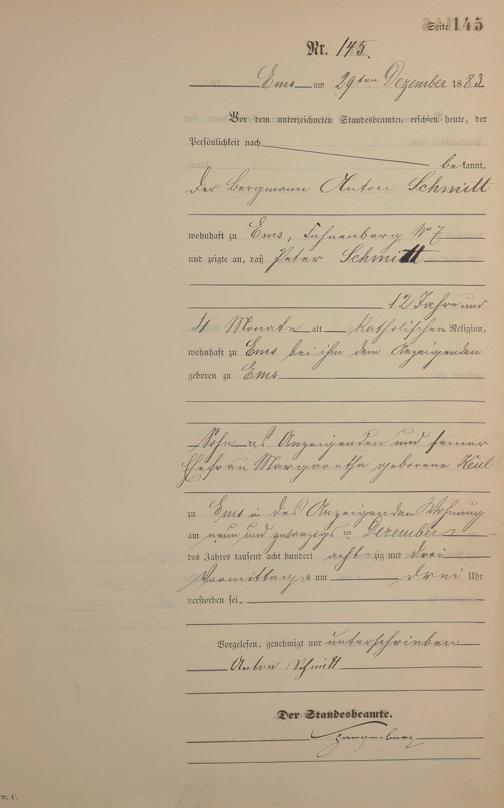 Seite 145
Nr. 145.
Ems am 29ten Dezember 1883
Vor dem unterzeichneten Standesbeamten erschien heute, der
Persönlichkeit nach
bekannt,
der Bergmann Anton Schmitt
wohnhaft zu Ems, Fahnenberg No 7
und zeigte an, daß Peter Schmitt
12 Jahre und
4 Monate alt Katholischer Religion,
wohnhaft zu Ems bei ihm dem Anzeigenden
geboren zu Ems
Sohn des Anzeigenden und seiner
Ehefrau Margaretha geborene Keul
zu Ems in des Anzeigenden Wohnung
am neun und zwanzigsten Dezember
des Jahres tausend acht hundert acht zig und drei
Vormittags um drei Uhr
verstorben sei.
Vorgelesen, genehmigt und unterschrieben
Anton Schmitt
Der Standesbeamte.